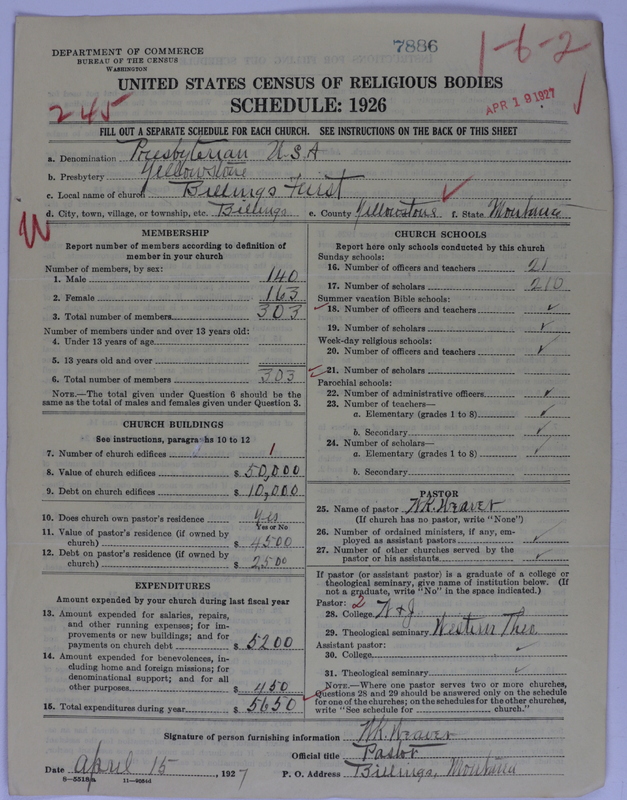 7886
1-6-2
DEPARTMENT OF COMMERCE
BUREAU OF THE CENSUS
WASHINGTON
UNITED STATES CENSUS OF RELIGIOUS BODIES
SCHEDULE: 1926
245
APR 19 1927
FILL OUT A SEPARATE SCHEDULE FOR EACH CHURCH. SEE INSTRUCTIONS ON THE BACK OF THIS SHEET
a. Denomination Presbyterian U.S.A
b. Presbytery Yellowstone
c. Local name of church Billings First
d. City, town, village, or township, etc. Billings e. County Yellowstone f. State Montana
W
MEMBERSHIP
Report number of members according to definition of
member in your church
Number of members, by sex:
1. Male 140
2. Female 163
3. Total number of members 303
Number of members under and over 13 years old:
4. Under 13 years of age
5. 13 years old and over
6. Total number of members 303
NOTE.—The total given under Question 6 should be the
same as the total of males and females given under Question 3.
CHURCH BUILDINGS
See instructions, paragraphs 10 to 12
7. Number of church edifices 1
8. Value of church edifices $ 50,000
9. Debt on church edifices $ 10,000
10. Does church own pastor's residence Yes
Yes or No
11. Value of pastor's residence (if owned by
church) $ 4500
12. Debt on pastor's residence (if owned by
church) $ 2,500
EXPENDITURES
Amount expended by your church during last fiscal year
13. Amount expended for salaries, repairs,
and other running expenses; for im-
provements or new buildings; and for
payments on church debt $ 5200
14. Amount expended for benevolences, in-
cluding home and foreign missions; for
denominational support; and for all
other purposes $ 450
15. Total expenditures during year $ 5650
CHURCH SCHOOLS
Report here only schools conducted by this church
Sunday schools:
16. Number of officers and teachers 21
17. Number of scholars 210
Summer vacation Bible schools:
18. Number of officers and teachers ✓
19. Number of scholars ✓
Week-day religious schools:
20. Number of officers and teachers ✓
21. Number of scholars
Parochial schools:
22. Number of administrative officers ✓
23. Number of teachers—
a. Elementary (grades 1 to 8) ✓
b. Secondary ✓
24. Number of scholars—
a. Elementary (grades 1 to 8) ✓
b. Secondary
PASTOR
25. Name of pastor W.K. Weaver
(If church has no pastor, write "None")
26. Number of ordained ministers, if any, em-
ployed as assistant pastors ✓
27. Number of other churches served by the
pastor or his assistants ✓
If pastor (or assistant pastor) is a graduate of a college or
theological seminary, give name of institution below. (If
not a graduate, write "No" in the space indicated.)
Pastor: 2
28. College W & J
29. Theological seminary Western Theo.
Assistant pastor:
30. College ✓
31. Theological seminary ✓
NOTE.—Where one pastor serves two or more churches,
Questions 28 and 29 should be answered only on the schedule
for one of the churches; on the schedules for the other churches,
write "See schedule for church."
Signature of person furnishing information W.K. Weaver
Official title Pastor
Date April 15, 1927 P. O. Address Billings, Montana
8—5518a 11—9084d